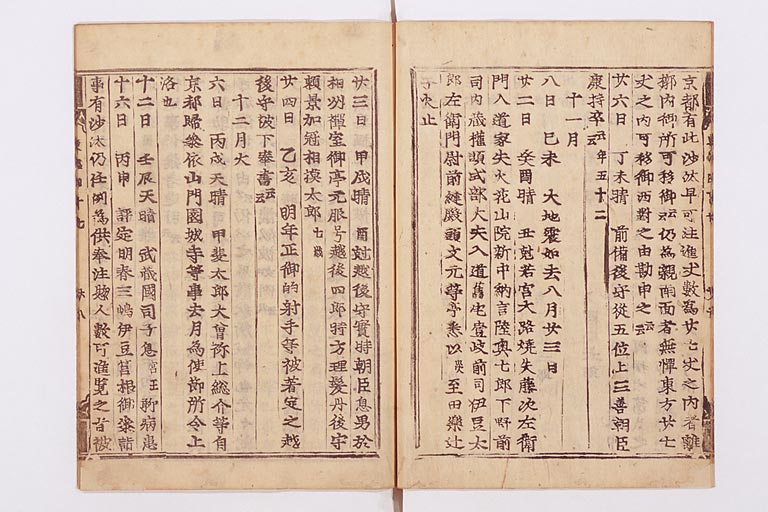 京都有此沙汰早可注進丈數為廿七丈之内者雖
御所可移御云云仍為親面者無憚東方廿七
丈之内可移御西對之由勘申之云云
廿六日 丁未晴 前備後守從五位上三善朝臣
康持卒云云年五十二
十一月
八日 己未 大地震如去八月廿三日
廿二日 癸酉晴 丑尅若宮大路燒失藤次左衛
門入道家失火花山院新中納言陸奥七郎下野前
司内藏權頭式部大夫入道舊宅壹岐前司伊豆太
郎左衛門尉前縫殿頭文元等亭悉以
失止
廿三日 甲戌晴 酉尅越後守實時朝臣息男於
相州禪室御亭元服号越後四郎時方理髮丹後守
頼景加冠相摸太郎七歳
廿四日 乙亥 明年正御的射手等被著定之越
後守被下奉書云云
十二月大
六日 丙戌天晴 甲斐太郎大曾祢上総介等自
京都歸参依山門園城寺等事去月為使節所令上
洛也
十二日 壬辰天晴 武藏國司子息 病患
十六日 丙申 評定明春三嶋伊豆筥根御
事有沙汰仍任例為供奉注 人數可進覽之旨被